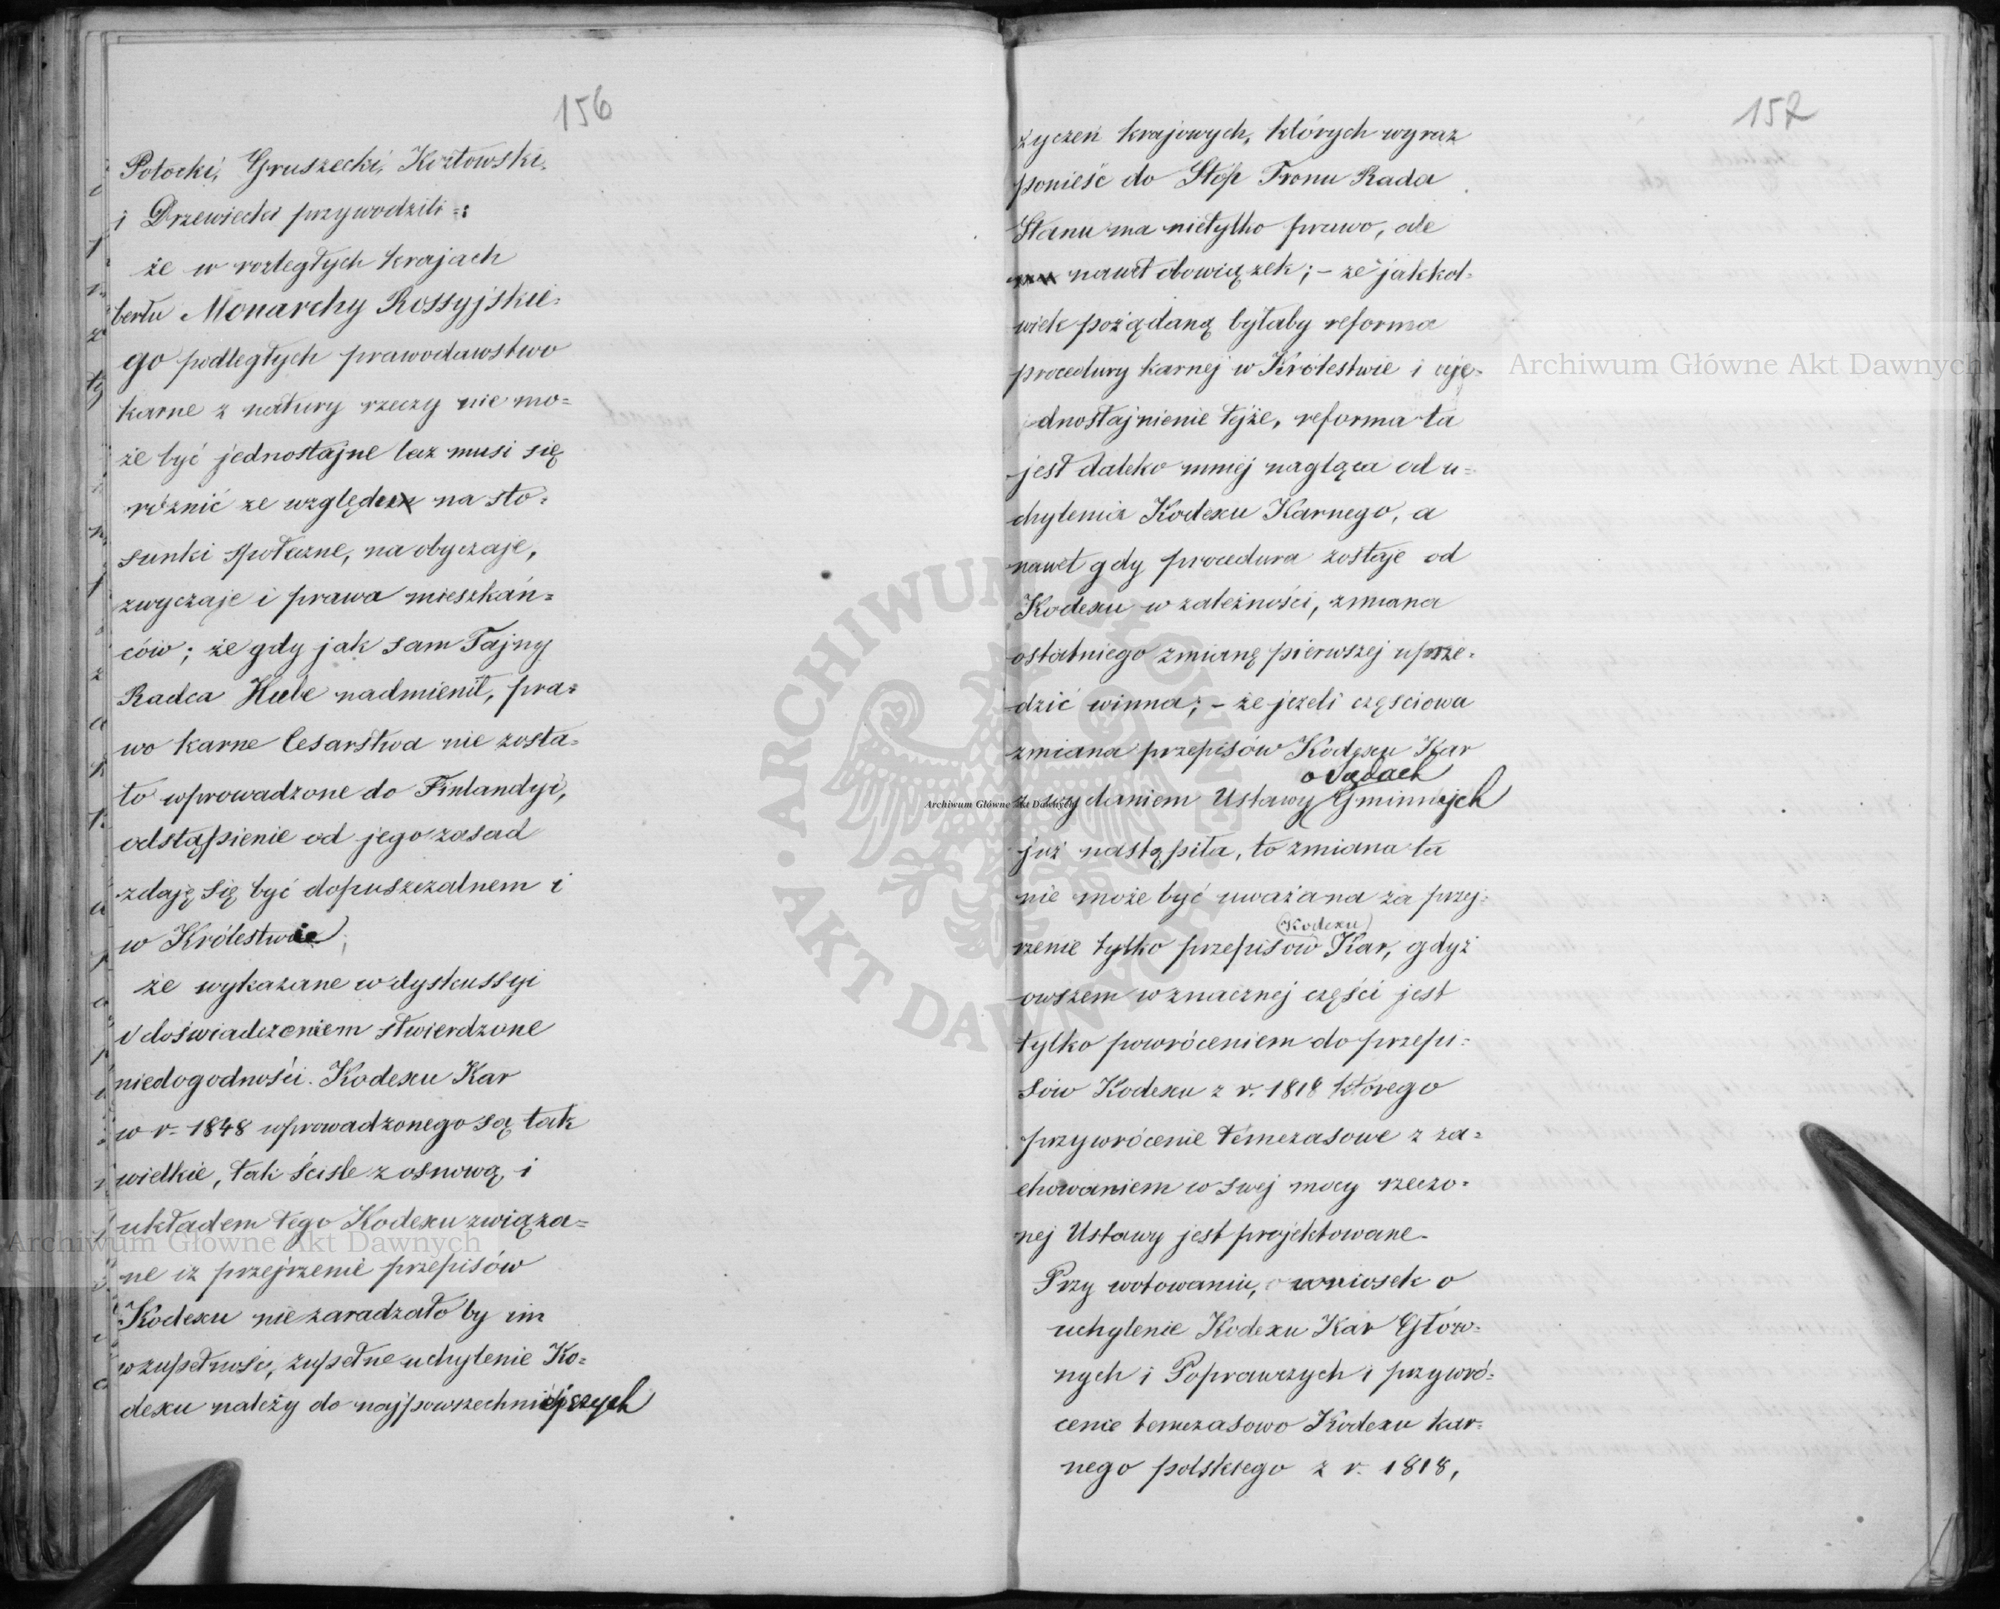 156
Potocki, Gruszecki, Kozłowski,
i Drzewiecki przywodzili =:
że w rozległych krajach
berłu Monarchy Rossyjskie-
go podległych prawodawstwo
karne z natury rzeczy nie mo=
że być jednostajne lecz musi się
różnić ze względu na sto=
sunki społeczne, na obyczaje,
zwyczaje i prawa mieszkań=
ców; że gdy jak sam Tajny
Radca Hube nadmienił, pra=
wo karne Cesarstwa nie zosta=
ło wprowadzone do Finlandyi,
odstąpienie od jego zasad
zdaję się być dopuszczalnem i
w Królestwie;
że wykazane w dyskussyi
i doświadczeniem stwierdzone
niedogodności Kodexu Kar
w r. 1848 wprowadzonego są tak
wielkie, tak ściśle z osnową i
układem tego Kodexu związa=
ne iż przejrzenie przepisów
Kodexu nie zaradzało by im
w zupełności, zupełne uchylenie Ko=
dexu należy do najpowszechniejszych
157
życzeń krajowych, których wyraz
ponieść do Stóp Tronu Rada
Stanu ma nietylko prawo, ale
nawet obowiązek; – że jakkol=
wiek pożądaną byłaby reforma
procedury karnej w Królestwie i uje=
dnostajnienie tejże, reforma ta
jest daleko mniej nagląca od u=
chylenia Kodexu Karnego, a
nawet gdy procedura zostaje od
Kodexu w zależności, zmiana
ostatniego zmianę pierwszej uprze=
dzić winna; – że jeżeli częściowa
zmiana przepisów Kodexu Kar
o Sądach
z wydaniem Ustawy Gminnych
już nastąpiła, to zmiana ta
nie może być uważana za przej=
(Kodexu)
rzenie tylko przepisów Kar, gdyż
owszem w znacznej części jest
tylko powróceniem do przepi=
sów Kodexu z r. 1818 którego
przywrócenie témczasowe z za=
chowaniem w swej mocy rzeczo=
nej Ustawy jest projektowane.
Przy wotowaniu, wniosek o
uchylenie Kodexu Kar Głów=
nych i Poprawczych i przywró=
cenie temczasowo Kodexu kar=
nego polskiego z r. 1818,
Archiwum Główne Akt Dawnych
Archiwum Główne Akt Dawnych
Archiwum Główne Akt Dawnych
ARCHIWUM GŁÓWNE AKT DAWNYCH